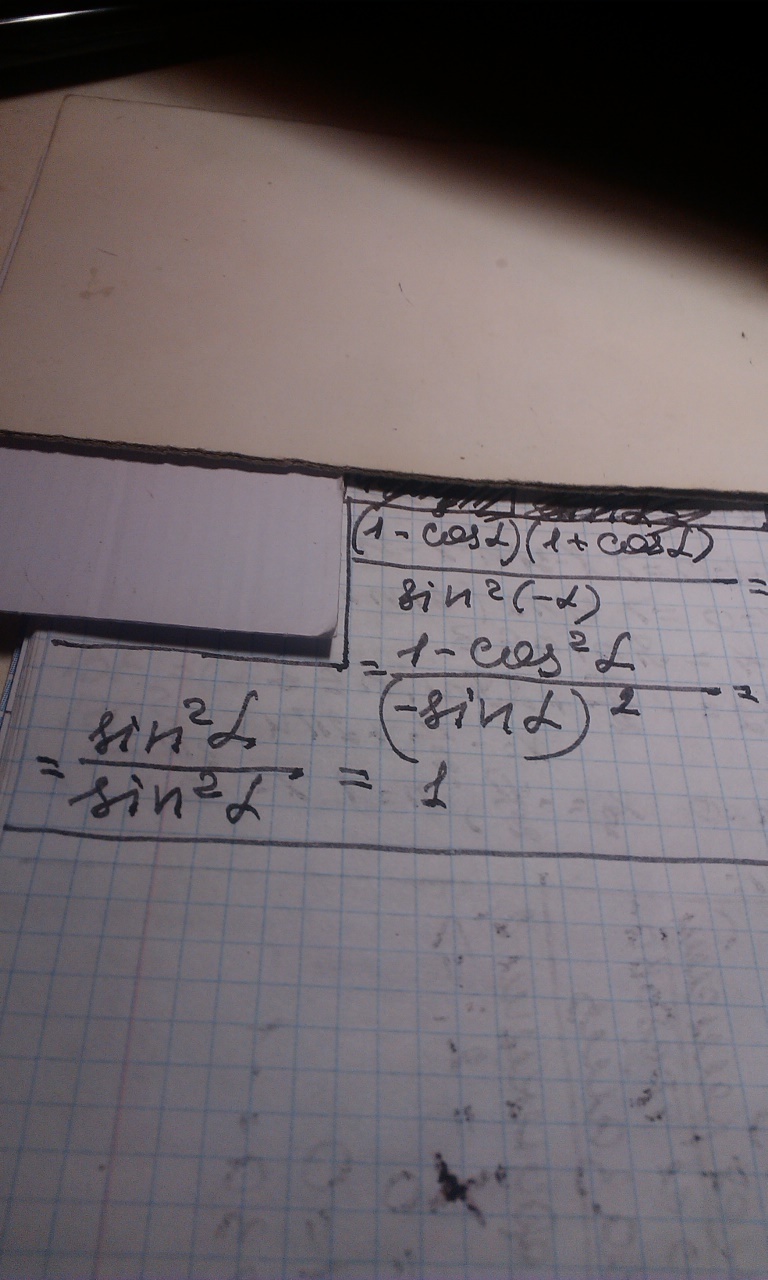 (1 - cos α)(1 + cos α) =
sin² (-α)
= 1 - cos² α =
(-sin α)²
= sin² α = 1
sin² α